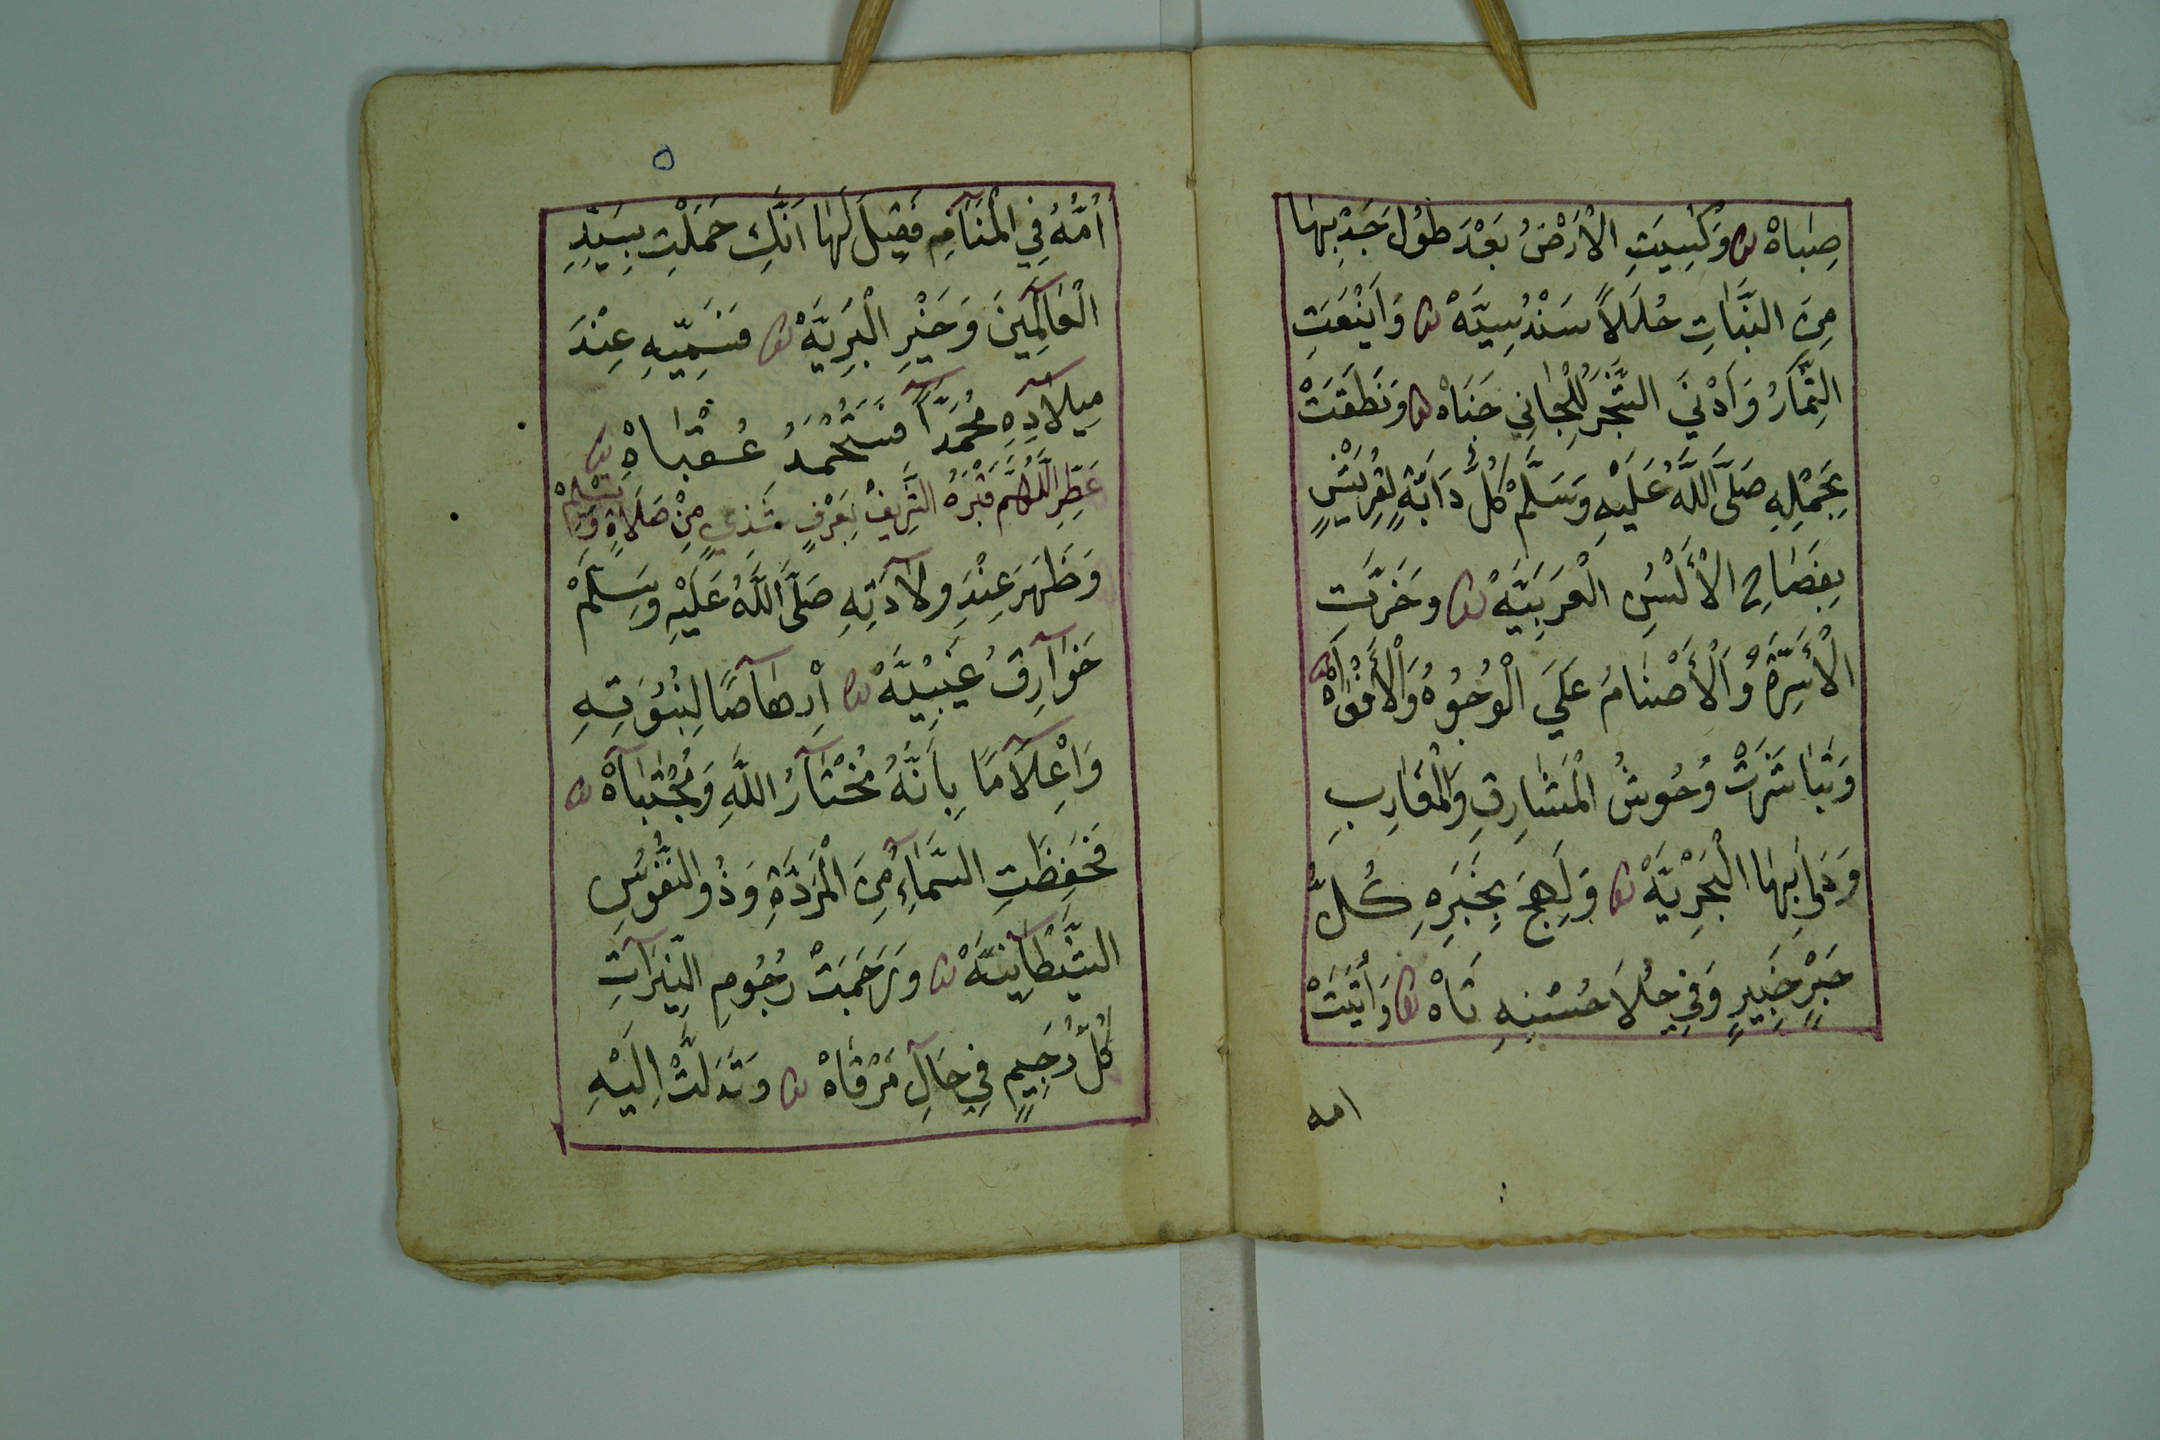 صِبَاهْ وَكُسِيَتِ الْاَرْضُ بَعْدَ طُوْلِ جَدْبِهَا
مِنَ النَّبَاتِ حُلَلاً سَنْدُسِيَّهْ وَاَيْنَعَتِ
الثِّمَارُ وَاَدْنَيَ الشَّجَرُ لِلْجَانِي جَنَاهْ وَنَطَقَتْ
بِحَمْلِهِ صَلَّى اللَّهُ عَلَيْهِ وَسَلَّمْ كُلُّ دَابَّةٍ لِقُرَيْشٍ
بِفَصَاحِ الْأَلْسُنِ الْعَرَبِيَّهْ وَخَرَّتِ
الْأَسِرَّةُ وَالْأَصْنَامُ عَلَي الْوُجُوْهِ وَالْأَفْوَاهْ
وَتَبَاشَرَتْ وُحُوشُ الْمَشَارِقِ وَالْمَغَارِبِ
وَدَوَابُّهَا الْبَحْرِيَّهْ وَلَهِجَ بِخَبَرِهِ كُلُّ
حَبْرٍ خَبِيرٍ وَفِي حُلَا حُسْنِهِ تَاهْ وَأُتِيَتْ
امه
٥
اُمُّهُ فِي الْمَنَآمِ فَقِيلَ لَهَا اَنَّكِ حَمَلْتِ بِسَيِّدِ
الْعَالَمِينَ وَخَيْرِ الْبَرِيَّهْ فَسَمِّيهِ عِنْدَ
مِيلَآدِهِ مُحَمَّدًا فَسَتُحْمَدُ عُقْبَاهْ
عَطِّرِ اللَّهُمَّ قَبْرَهُ الشَّرِيفْ بِعَرْفٍ شَذِيٍ مِنْ صَلَاةٍ وَتَسْلِيمْ
وَظَهَرَ عِنْدَ وِلَآدَتِهِ صَلَّى اللَّهُ عَلَيْهِ وَسَلَّمْ
خَوَآرِقُ غَيْبِيَّهْ اِرْهَآصًا لِنُبُوَّتِهِ
وَاِعْلَآمًا بِاَنَّهُ مُخْتَآرُ اللَّهِ وَمُجْتَبَآهْ
فَحُفِظَتِ السَّمَاءُ مِنَ الْمَرَدَةِ وَذُوالنُّفُوْسِ
الشَّيْطَآنِيَّهْ وَرَجَمَتْ رُجُومِ النَّيِّرَآتِ
كُلَّ رَجِيمٍ فِي حَآلِ مَرْقَاهْ وَتَدَلَّتْ اِلَيْهِ